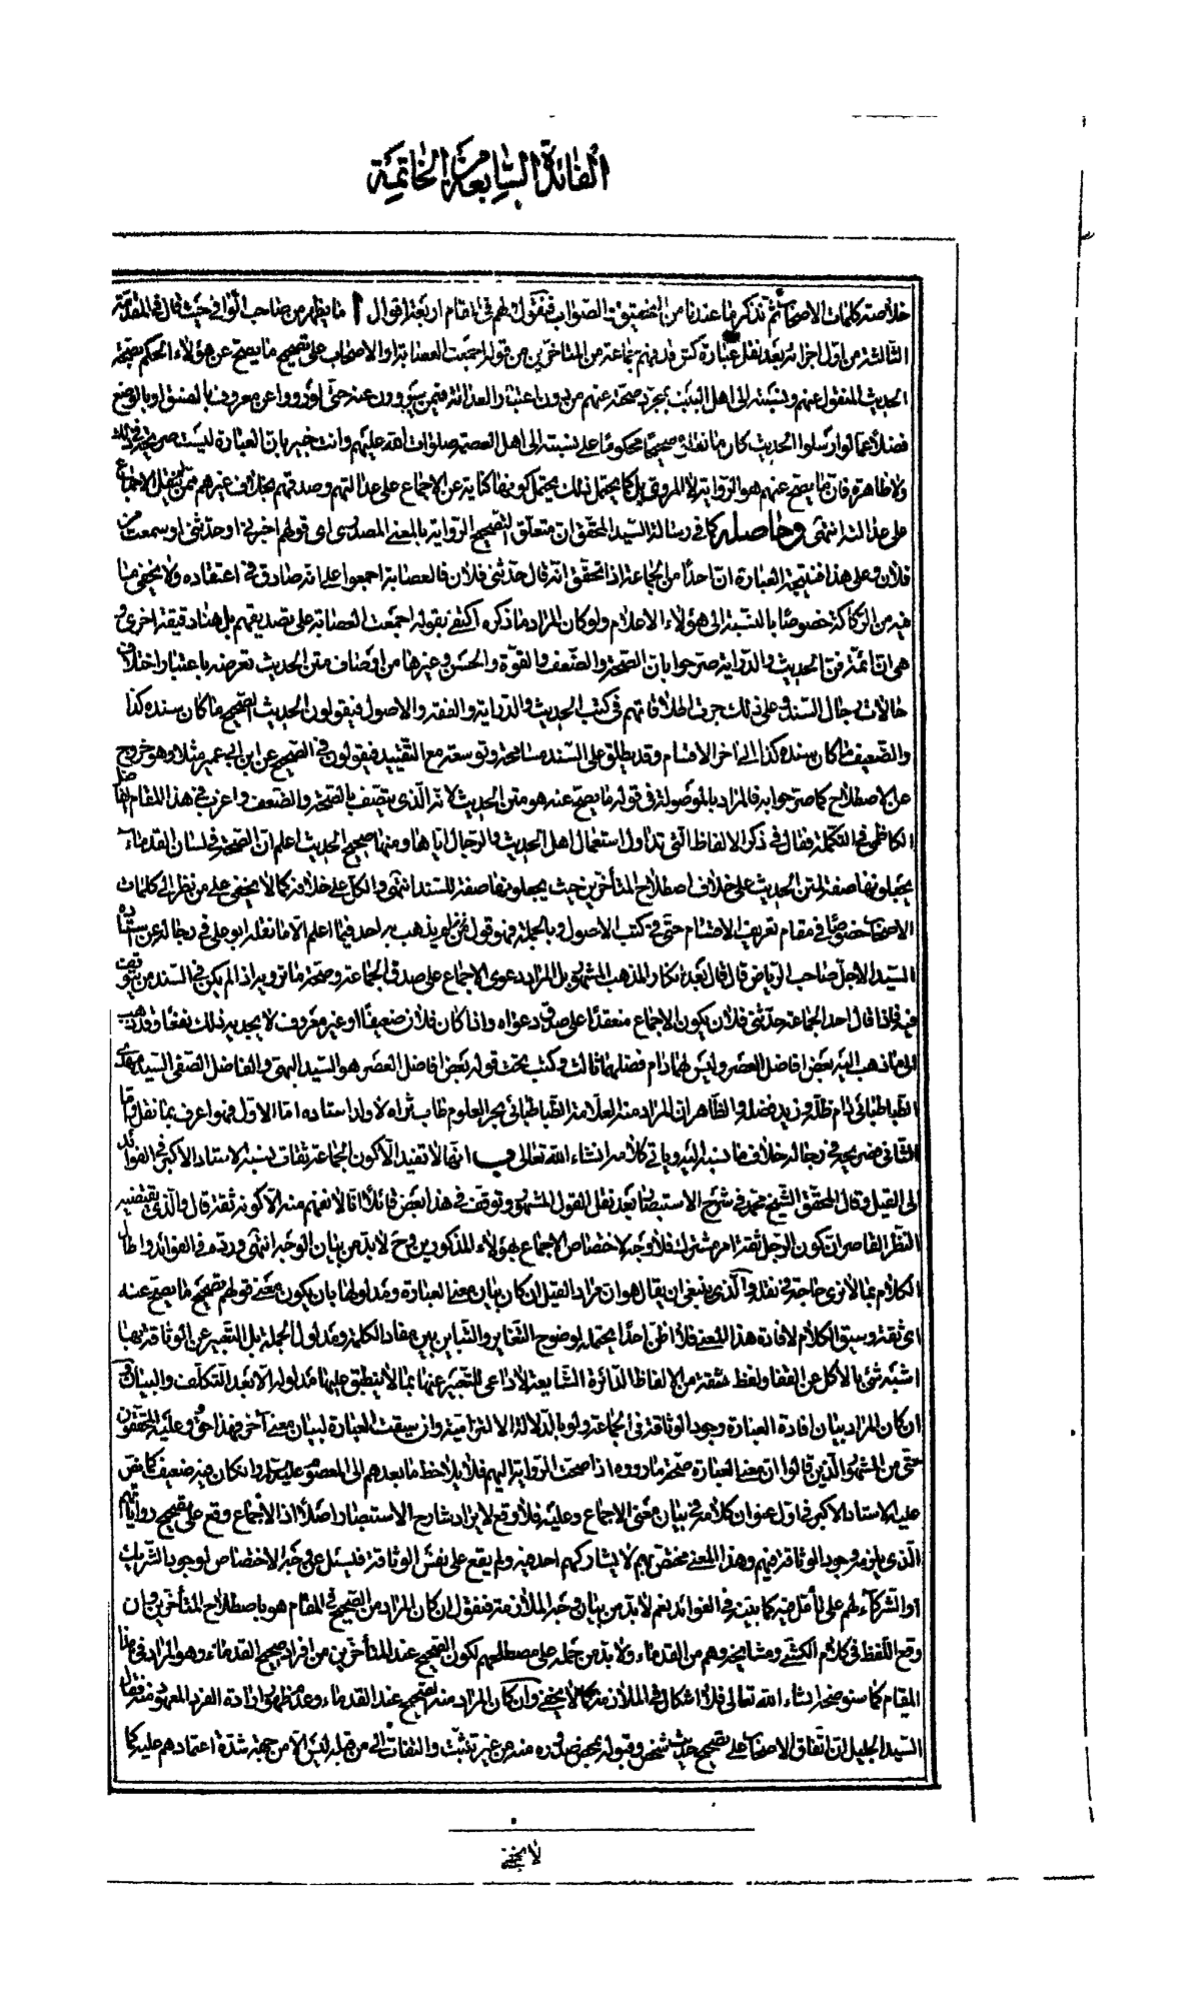 الفائدة السابعة من الخاتمة
خلاصة كلمات الاصحاب ثم نذكر ما عندنا من التحقيق الصواب فنقول لهم في المقام اربعة اقوال ا ما يظهر من صاحب الوافي حيث قال في المقدمة
الثالثة من اول اجزائه بعد نقل عبارة كش قد فهم جماعة من المتاخرين من قوله اجمعت العصابة او الاصحاب على تصحيح ما يصح عن هؤلاء الحكم بصحة
الحديث المنقول عنهم ونسبته الى اهل البيت بمجرد صحته عنهم من دون اعتبار العدالة فيمن يروون عنه حتى لو رووا عن معروف بالفسق او بالوضع
فضلا عما لو ارسلوا الحديث كان ما نقلوه صحيحا محكوما على نسبته الى اهل العصمة صلوات الله عليهم وانت خبير بان العبارة ليست صريحة في ذلك
ولا ظاهرة فان ما يصح عنهم هو الرواية لا المروي بل كما يحتمل ذلك يحتمل كونها كناية عن الاجماع على عدالتهم وصدقهم بخلاف غيرهم ممن لم ينقل الاجماع
على عدالته انتهى وحاصله كما في رسالة السيد المحقق ان متعلق التصحيح الرواية بالمعنى المصدري اي قولهم اخبرني او حدثني او سمعت من
فلان وعلى هذا فنتيجة العبارة ان احدا من الجماعة اذا تحقق انه قال حدثني فلان فالعصابة اجمعوا على انه صادق في اعتقاده ولا يخفى ما
فيه من الركاكة خصوصا بالنسبة الى هؤلاء الاعلام ولو كان المراد ما ذكره اكتفى بقوله اجمعت العصابة على تصديقهم بل هنا دقيقة اخرى و
هي ان ائمة فن الحديث والدراية صرحوا بان الصحة والضعف والقوة والحسن وغيرها من اوصاف متن الحديث تعرضه باعتبار اختلاف
حالات رجال السند وعلى ذلك جرت اطلاقاتهم في كتب الحديث والدراية والفقه والاصول فيقولون الحديث الصحيح ما كان سنده كذا
والضعيف ما كان سنده كذا الى اخر الاقسام وقد يطلق على السند مسامحة وتوسعة مع التقييد فيقولون في الصحيح عن ابن ابي عمير مثلا وهو خروج
عن الاصطلاح كما صرحوا به فالمراد بالموصولة في قوله ما يصح عنه هو متن الحديث لانه الذي يتصف بالصحة والضعف واغرب في هذا المقام الفاضل
الكاظمي في التكملة فقال في ذكر الالفاظ التي تداول استعمال اهل الحديث والرجال اياها ومنها صحيح الحديث اعلم ان الصحة في لسان القدماء
يجعلونها صفة لمتن الحديث على خلاف اصطلاح المتأخرين حيث يجعلونها صفة للسند انتهى والكل على خلافه كما لا يخفى على من نظر الى كلمات
الاصحاب خصوصا في مقام تعريف الاقسام حتى في كتب الاصول وبالجملة فهو قول لم يذهب به احد فيما اعلم الا ما نقله ابو علي في رجاله عن استاده
السيد الاجل صاحب الرياض قال قال بعد انكار المذهب المشهور بل المراد دعوى الاجماع على صدق الجماعة وصحة ما ترويه اذا لم يكن في السند من يتوقف
فيه فاذا قال احد الجماعة حدثني فلان يكون الاجماع منعقدا على صدق دعواه واذا كان فلان ضعيفا او غير معروف لا يجديه ذلك نفعا وقد ذهب
الى ما ذهب اليه بعض افاضل العصر وليس لهما دام فضلهما ثالث وكتب تحت قوله بعض افاضل العصر هو السيد البهي والفاضل الصفي السيد مهدي
الطباطبائي دام ظله وزيد فضله والظاهر ان المراد منه العلامة الطباطبائي بحر العلوم طاب ثراه لا ولد استاده اما الاول فهو اعرف بما نقل واما
الثاني فصريحه في رجاله خلاف ما نسبه اليه وياتي كلامه انشاء الله تعالى ب انها لا تفيد الا كون الجماعة ثقات نسبه الاستاد الاكبر في الفوائد
الى القيل وقال المحقق الشيخ محمد في شرح الاستبصار بعد نقل القول المشهور وتوقف في هذا بعض قائلا انا لا نفهم منه الا كونه ثقة قال والذي يقتضيه
النظر القاصر ان كون الرجل ثقة امر مشترك فلا وجه لاختصاص الاجماع بهؤلاء المذكورين وح لا بد من بيان الوجه انتهى ورده في الفوائد واطال
الكلام بما لا نرى حاجة في نقله والذي ينبغي ان يقال هو ان مراد القيل ان كان بيان معنى العبارة ومدلولها بان يكون معنى قولهم تصحيح ما يصح عنه
اي ثقة وسيق الكلام لافادة هذا المعنى فلا اظن احدا يحتمله لوضوح التغاير والتباين بين مفاد الكلمة ومدلول الجملة بل التعبير عن الوثاقة بها
اشبه شئ بالاكل عن القفا ولفظ ثقة من الالفاظ الدائرة الشايعة لا داعي للتعبير عنها بما لا ينطبق عليها مدلوله الا بعد التكلف والبيان و
ان كان المراد بيان افادة العبارة وجود الوثاقة في الجماعة ولو بالدلالة الالتزامية وان سيقت العبارة لبيان معنى آخر فهذا حق وعليه المحققون
حتى من المشهور الذين قالوا ان معنى العبارة صحة ما رووه اذا صحت الرواية اليهم فلا يلاحظ ما بعدهم الى المعصوم عليه السلام وان كان فيه ضعيف كما نص
عليه الاستاد الاكبر في اول عنوان كلامه في بيان معنى الاجماع وعليه فلا وقع لايراد شارح الاستبصار اصلا اذ الاجماع وقع على تصحيح رواياتهم
الذي يلزمه وجود الوثاقة فيهم وهذا المعنى مختص بهم لا يشاركهم احد فيه ولم يقع على نفس الوثاقة فيسئل عن وجه الاختصاص لوجود الشريك
او الشركاء لهم على تأمل فيه كما بينه في الفوائد نعم لا بد من بيان وجه الملازمة فنقول ان كان المراد من الصحيح في المقام هو باصطلاح المتأخرين وان
وقع اللفظ في كلام الكشي ومشايخه وهم من القدماء ولا بد من حمله على مصطلحهم لكون الصحيح عند المتأخرين من افراد صحيح القدماء وهو المراد في هذا
المقام كما سنوضحه انشاء الله تعالى فلا اشكال في الملازمة كما لا يخفى وان كان المراد منه الصحيح عند القدماء وعدم ظهور ارادة الفرد المعهود منه فقال
السيد الجليل ان اتفاق الاصحاب على تصحيح حديث شخص وقبوله بمحض صدوره منه من غير تثبت والتفات الى من قبله ليس الا من جهة شدة اعتمادهم عليه كما
لا يخفى